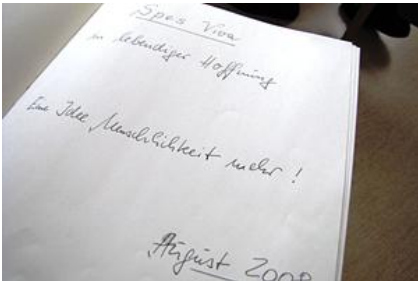 Spes Viva
in lebendiger Hoffnung
Eine Idee Menschlichkeit mehr!
August 2008